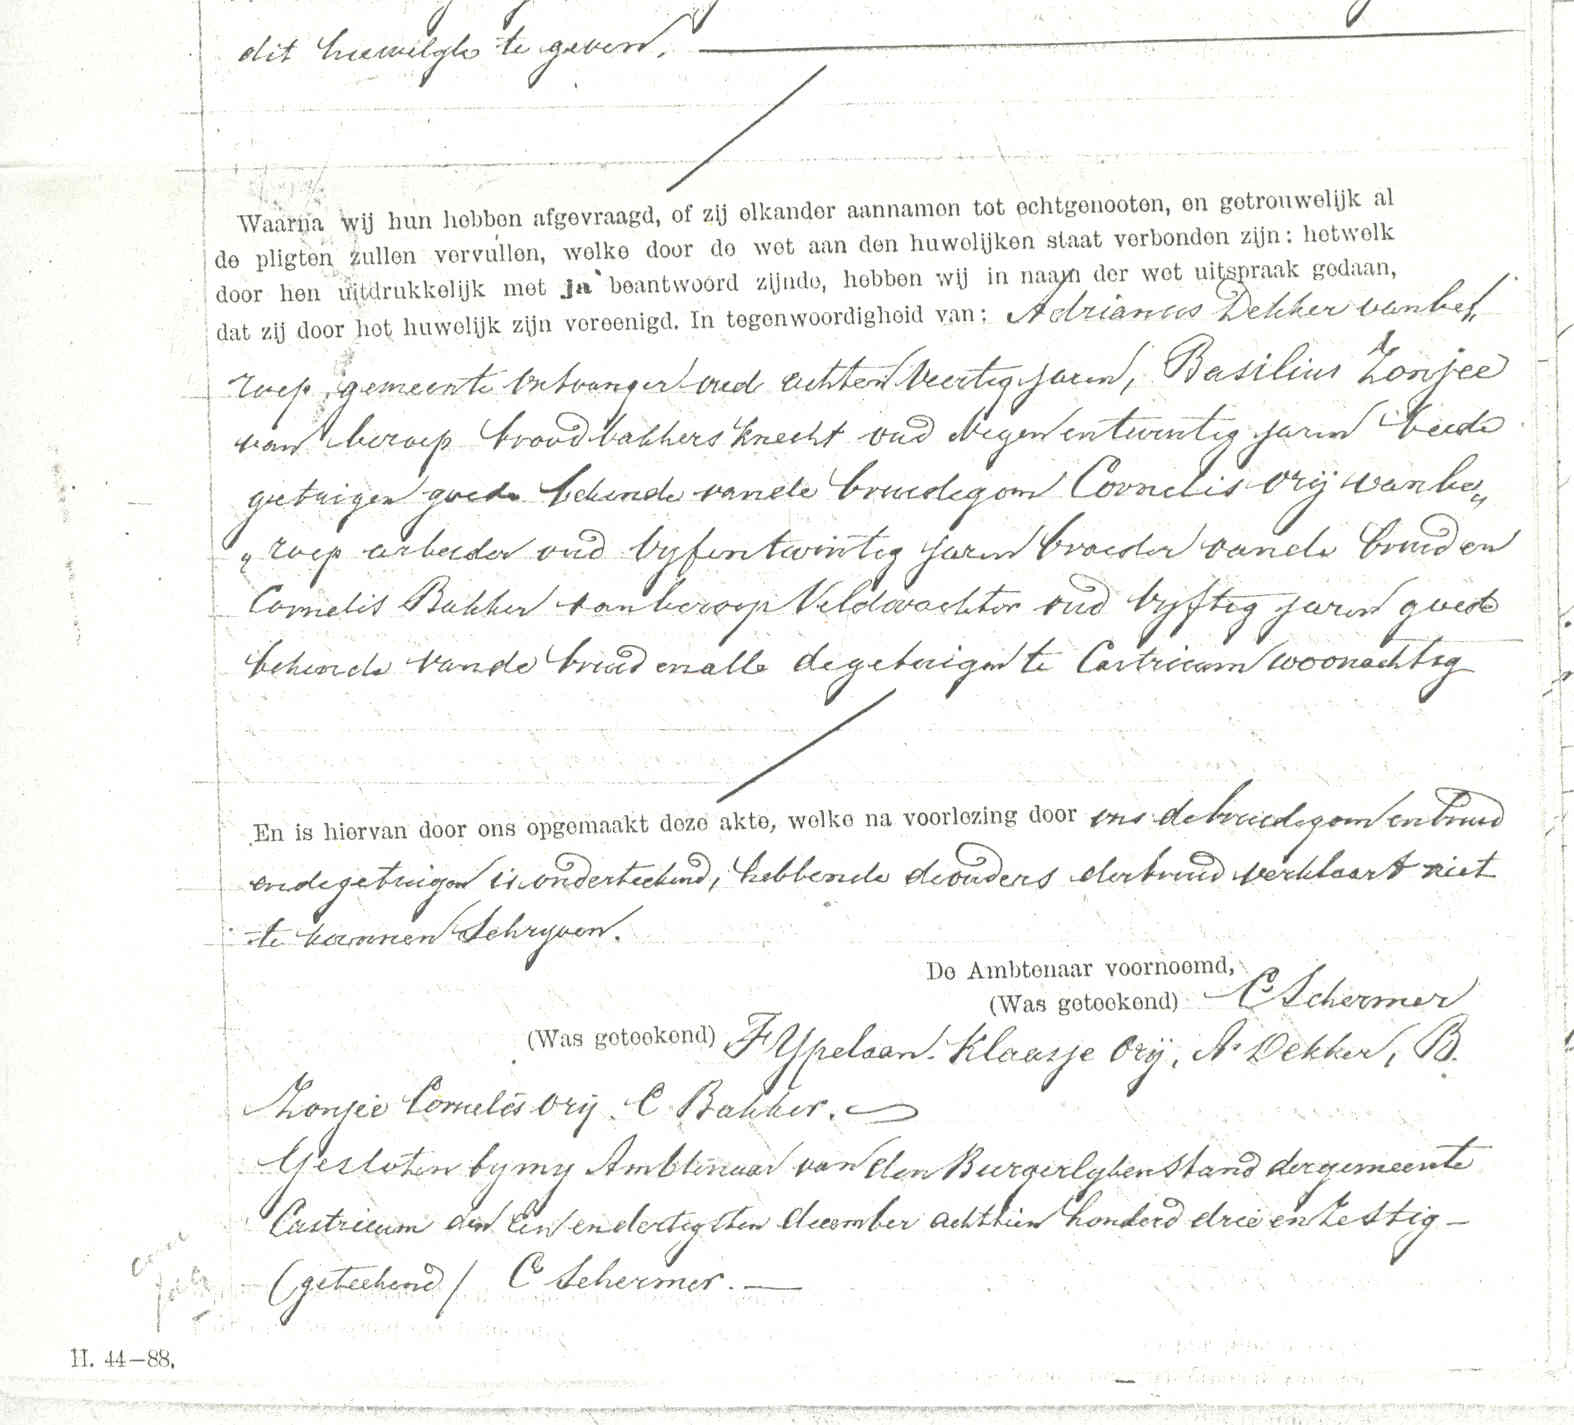 dit huwelyk te geven.
Waarna wij hun hebben afgevraagd, of zij elkander aannamen tot echtgenooten, en getrouwelijk al
de pligten zullen vervullen, welke door de wet aan den huwelijken staat verbonden zijn: hetwelk
door hen uitdrukkelijk met ja beantwoord zijnde, hebben wij in naam der wet uitspraak gedaan,
dat zij door het huwelijk zijn vereenigd. In tegenwoordigheid van: Adrianus Dekker van be„
roep, gemeente Ontvanger oud achten veertig jaren, Basilius Zonjee
van beroep broodbakkers knecht oud Negen en twintig jaren beide
getuigen goede bekende van de bruidegom Cornelis Vrij van be„
„roep arbeider oud vyf en twintig jaren broeder van de bruid en
Cornelis Bakker van beroep Veldwachter oud vyftig jaren goede
bekende van de bruid en alle de getuigen te Castricum woonachtig
En is hiervan door ons opgemaakt deze akte, welke na voorlezing door ons de bruidegom en bruid
en de getuigen is onderteekend, hebbende de ouders der bruid verklaart niet
te kunnen Schryven.
De Ambtenaar voornoemd,
(Was geteekend) C Schermer
(Was geteekend) F Ypelaan. Klaasje Vrij, A. Dekker, B.
Zonjee Cornelis Vrij. C Bakker.
Gesloten by my Ambtenaar van den Burgerlyken stand der gemeente
Castricum den een en dertigsten december achttien honderd drie en Zestig —
(geteekend) C Schermer. —
H. 44—88.